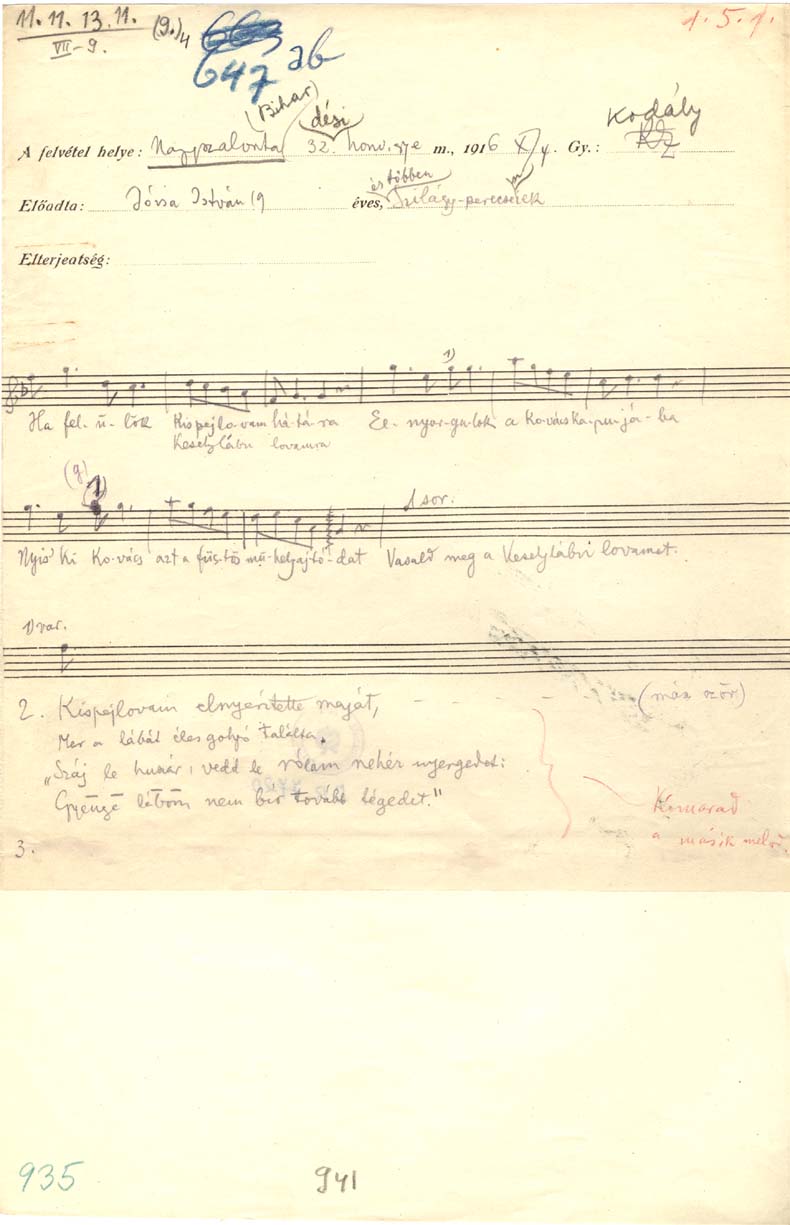 11. 11. 13. 11. (9.)4
VII-9.
647 ab
1. 5. 1.
(Bihar) dési Kodály
A felvétel helye: Nagyszalonta 32. honv. gye m., 1916 X/4. Gy.: KZ
és többen
Előadta: Jósa István 19 éves, Szilágy-perecsenek
Elterjeatség:
1)
Ha fel-ü-lök Kispejlo-vam há-tá-ra Ee- nyar-ga-lok a Kovácska-pu-já-ba
Keselylábu lovamra
(g) 1) 1 sor.
Nyis' ki Ko-vács azt a füs-tös mű-helyajtó-dat Vasald meg a Keselylábú lovamat.
1) var.
2. Kispejlovam elnyerítette magát, (más ször)
Mer a lábát éles golyó találta.
"Száj le huszár, vedd le rólam nehéz nyergedet:
Gyenge lábom nem bír tovább tégedet."
Kimarad
a másik melód.
3.
935 941